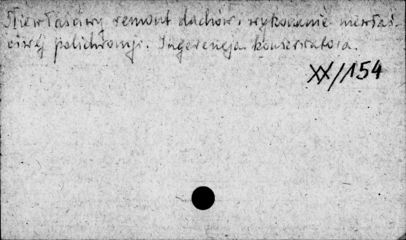 Niewłaściwy remont dachów i wykonanie niewłaś-
ciwej polichromji. Ingerencja konserwatora.
XX/154